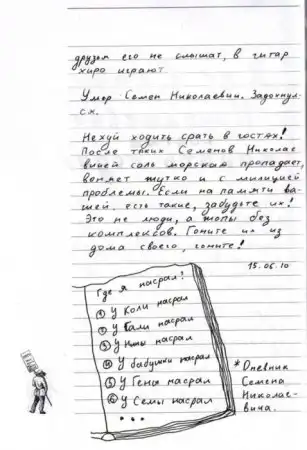 друзья его не слышат, в гитар
хиро играют
Умер Семен Николаевич. Задохнул-
ся.
Нехуй ходить срать в гостях!
После таких Семенов Николае
вичей соль морская пропадает,
воняет жутко и с милицией
проблемы. Если на памяти ва-
шей, есть такие, забудьте их!
Это не люди, а жопы без
комплексов. Гоните их из
дома своего, гоните!
15.06.10
Где я насрал?
① У Коли насрал
② У Гали насрал
③ У Нины насрал
④ У бабушки насрал
⑤ У Гены насрал
⑥ У Семы насрал
...
* Дневник
Семена
Николае-
вича.